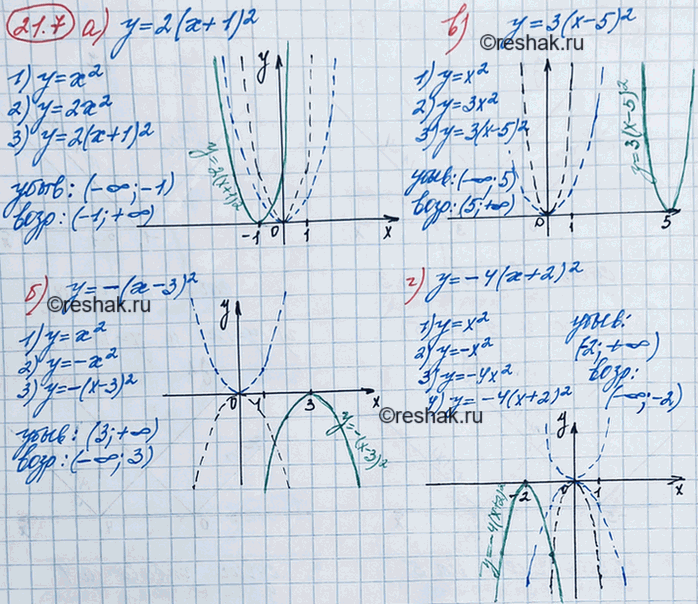 21.7 а) y=2(x+1)²
1) y=x²
2) y=2x²
3) y=2(x+1)²
убыв: (-∞;-1)
возр: (-1;+∞)
y
y=2(x+1)²
-1 0 1 x
в) y=3(x-5)²
©reshak.ru
1) y=x²
2) y=3x²
3) y=3(x-5)²
убыв: (-∞;5)
возр: (5;+∞)
y=3(x-5)²
0 1 5
б) y=-(x-3)²
©reshak.ru
1) y=x²
2) y=-x²
3) y=-(x-3)²
убыв: (3;+∞)
возр: (-∞;3)
y
0 1 3 x
y=-(x-3)²
г) y=-4(x+2)²
1) y=x²
2) y=-x²
3) y=-4x²
4) y=-4(x+2)²
©reshak.ru
убыв:
(2;+∞)
возр:
(-∞;-2)
y
-2 0 1 x
y=-4(x+2)²